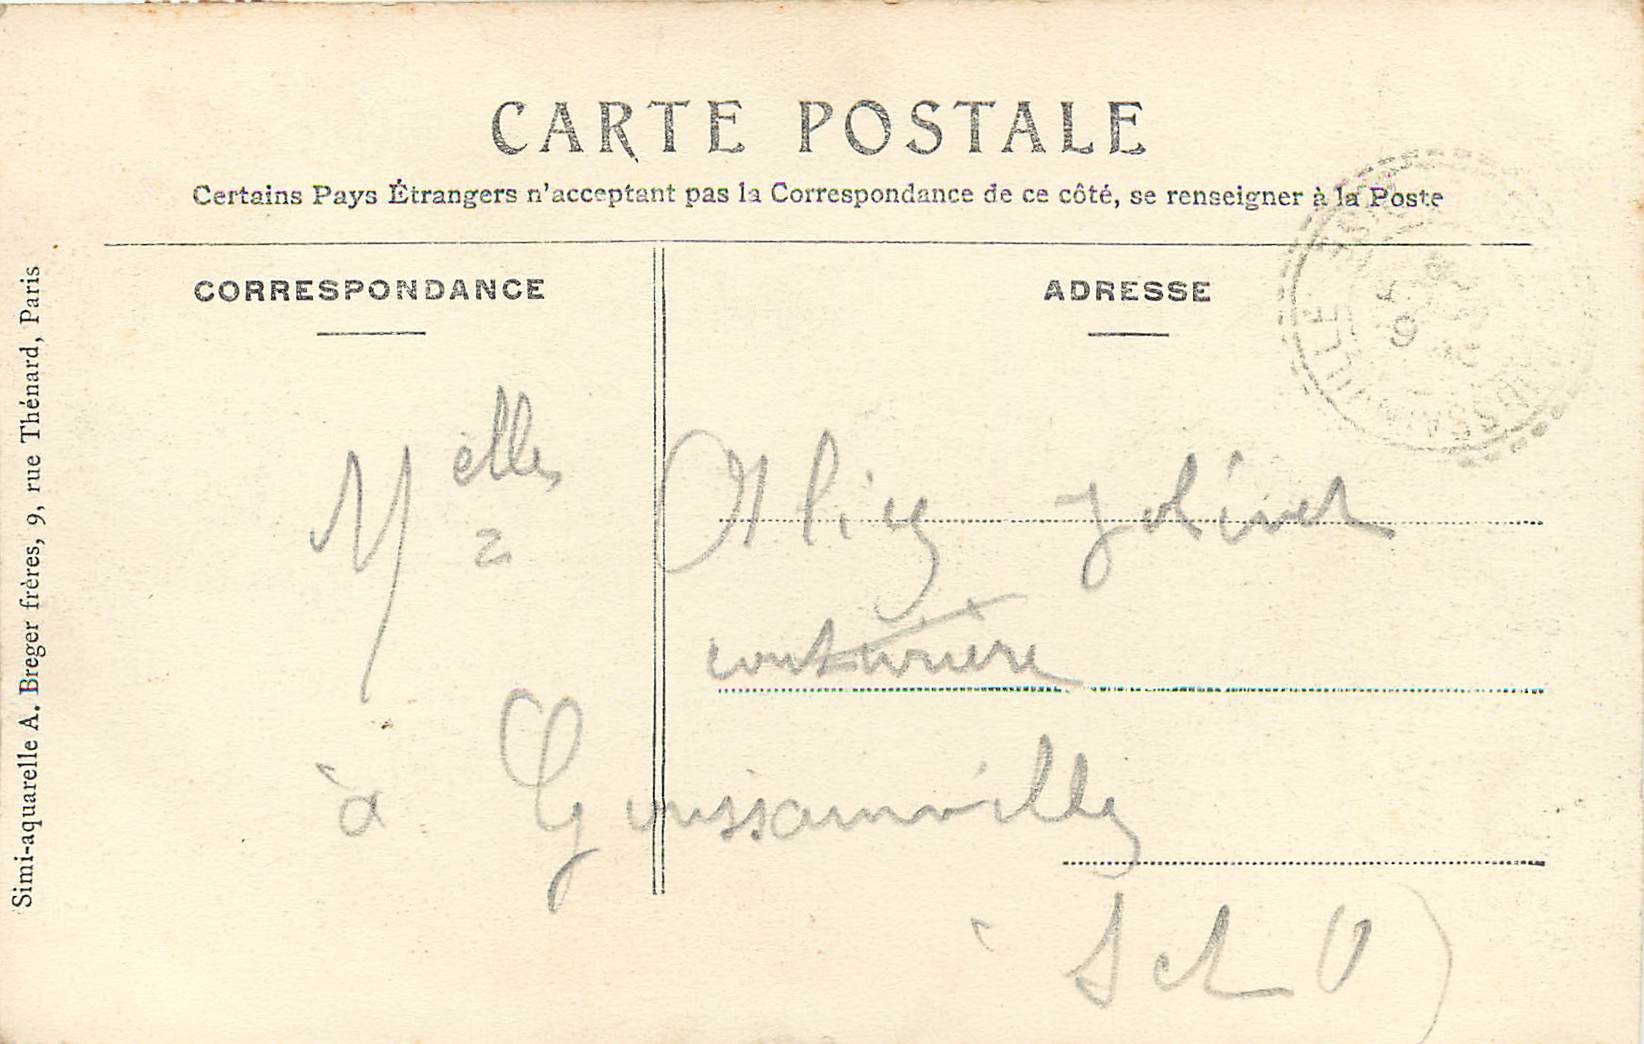 CARTE POSTALE
Certains Pays Étrangers n'acceptant pas la Correspondance de ce côté, se renseigner à la Poste
CORRESPONDANCE
ADRESSE
Simi-aquarelle A. Breger frères, 9, rue Thénard, Paris
Melle Jolivet
couturière
à Goussainville
S et O